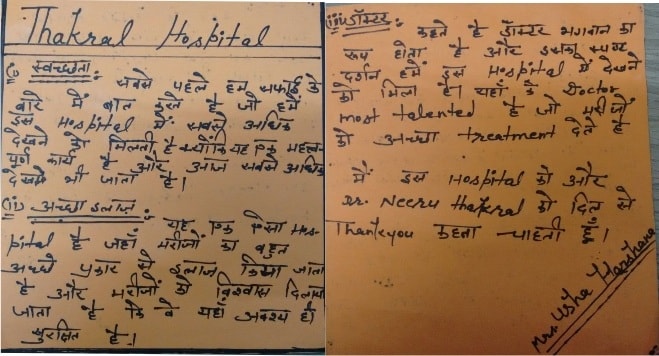 Thakral Hospital
(i) स्वच्छता :
सबसे पहले हम सफाई के
बारे में बात करते है जो हमें
इस Hospital में सबसे अधिक
देखने को मिलती है क्योंकि यह एक महत्व-
पूर्ण कार्य है और आज सबसे अधिक
देखा भी जाता है।
(ii) अच्छा इलाज :
यह एक ऐसा Hos-
pital है जहाँ मरीजों का बहुत
अच्छे प्रकार से इलाज किया जाता
है और मरीजों को विश्वास दिलाया
जाता है कि वे यहां अवश्य ही
सुरक्षित है।
(iii) डॉक्टर :
कहते है डॉक्टर भगवान का
रूप होता है और इसका
दर्शन हमें इस Hospital में देखने
को मिला है। यहाँ के Doctor
most talented है जो मरीजों
को अच्छा treatment देते है
मैं इस Hospital को और
Dr. Neeru thakral को दिल से
Thankyou कहना चाहती हूँ।
Mrs. Usha